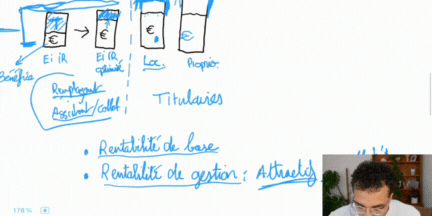 € → € € €
Ei IR Ei IR Loc. Proprio.
optimisé
Bénéfice
Remplaçant
Assistant/collab
Titulaires
• Rentabilité de base
• Rentabilité de gestion : Attractif
178 %